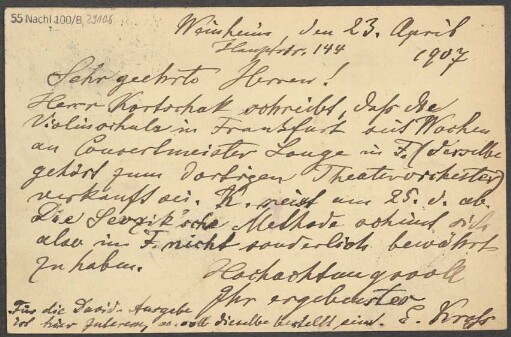 55 Nachl 100/B, 29106
Weinheim, den 23. April
Hauptstr. 144
1907
Sehr geehrte Herren!
Herr Kortschak schreibt, daß die
Violinschule in Frankfurt seit Wochen
an Concertmeister Lange in F. (derselbe
gehört zum dortigen Theaterorchester)
verkauft sei. K. reist am 25. d. ab.
Die Sevčik'sche Methode scheint sich
also in F. nicht sonderlich bewährt
zu haben.
Hochachtungsvoll
Ihr ergebenster
E. Kross
Für die David-Ausgabe
ist hier Interesse, soll dieselbe bestellt sein.